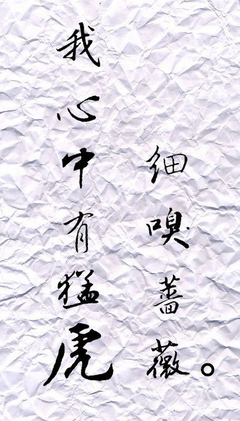 我心中有猛虎
细嗅蔷薇。